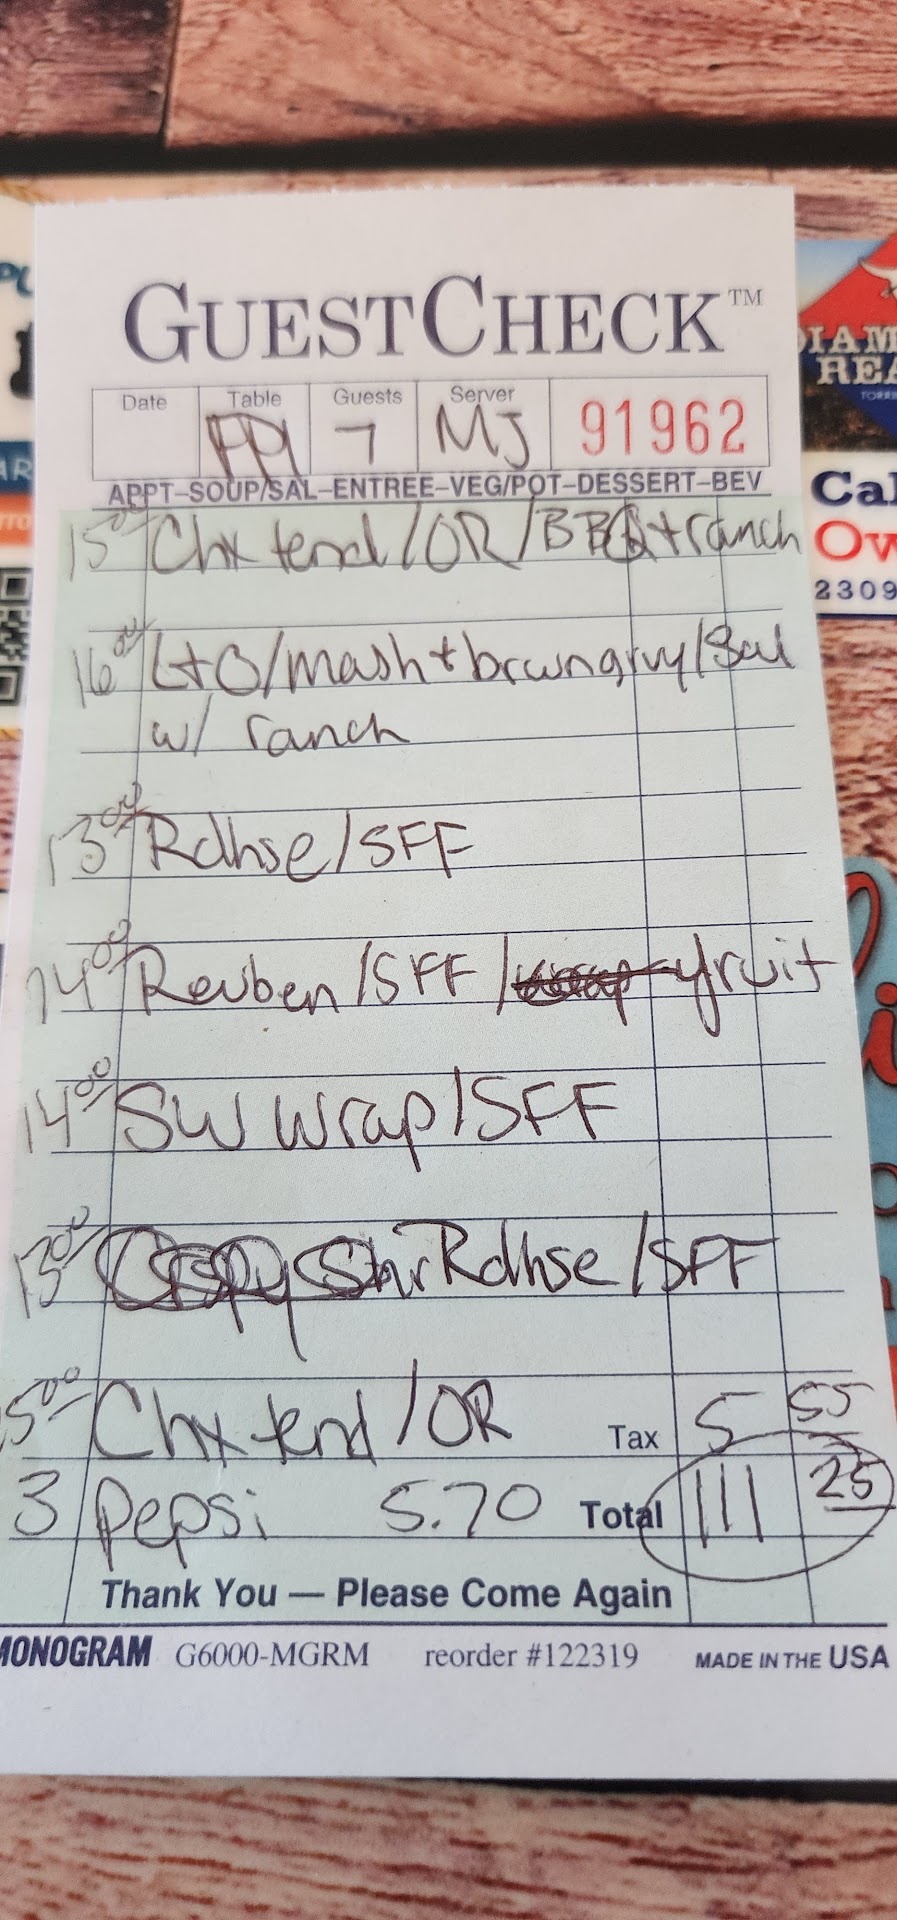 GUESTCHECK™
Date Table Guests Server
PP1 7 MJ 91962
APPT–SOUP/SAL–ENTREE–VEG/POT–DESSERT–BEV
15⁰⁰ Chx tend/OR/BBQ+ranch
16⁰⁰ L+O/mash+brwngrvy/Sal
w/ ranch
13⁰⁰ Rdhse/SFF
14⁰⁰ Reuben/SFF/ fruit
14⁰⁰ SW Wrap/SFF
13⁰⁰ Rdhse/SFF
15⁰⁰ Chx tend/OR Tax 5 55
3 Pepsi 5.70 Total 111 25
Thank You — Please Come Again
MONOGRAM G6000-MGRM reorder #122319 MADE IN THE USA
DIAM
REA
Cal
Ow
2309